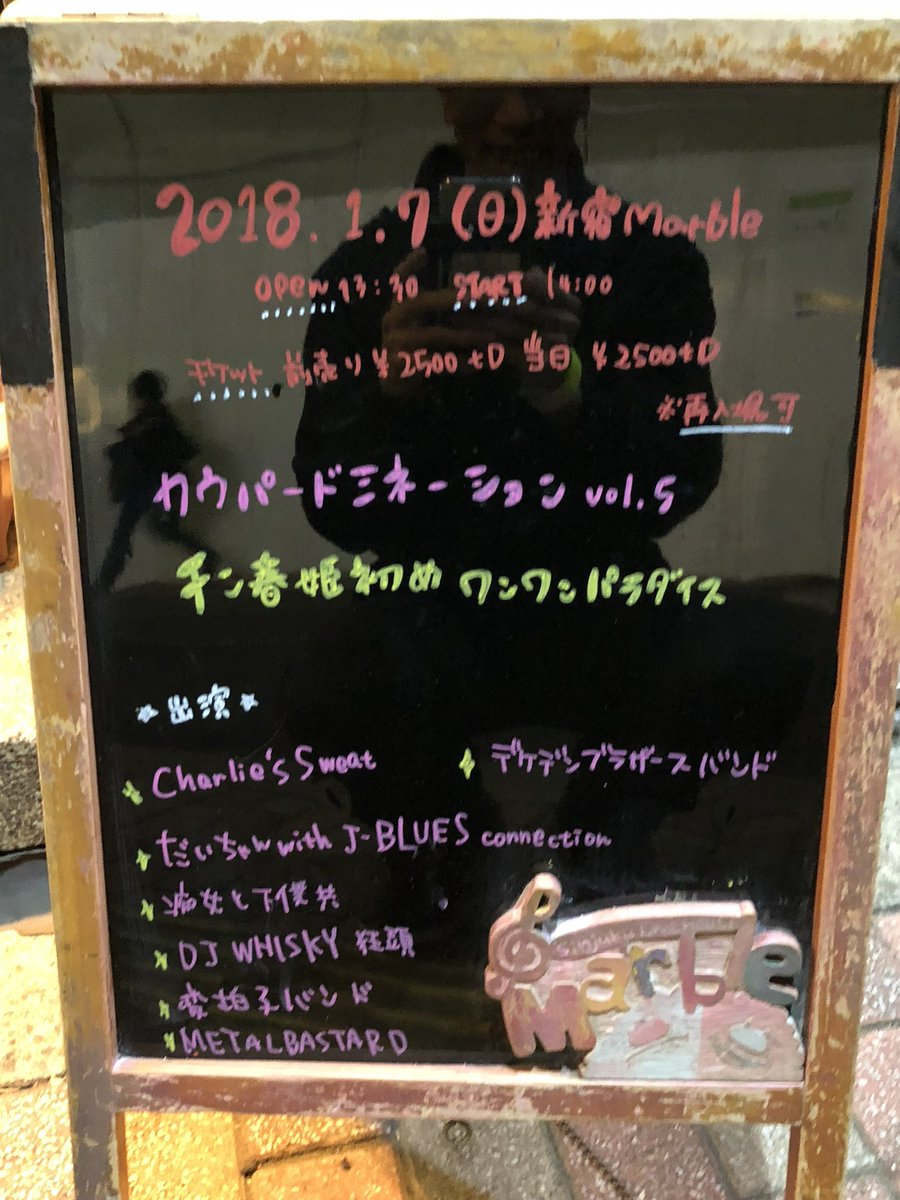 2018.1.7(日)新宿Marble
OPEN 13:30 START 14:00
チケット 前売り¥2500+D 当日 ¥2500+D
※再入場可
カウパードミネーション vol.5
チン春姫初め ワンワンパラダイス
★出演★
Charlie'sSweat
デケデンブラザースバンド
だいちゃんwith J-BLUES connection
痴女と下僕共
DJ WHISKY 
変拍子バンド
METALBASTARD
Marble